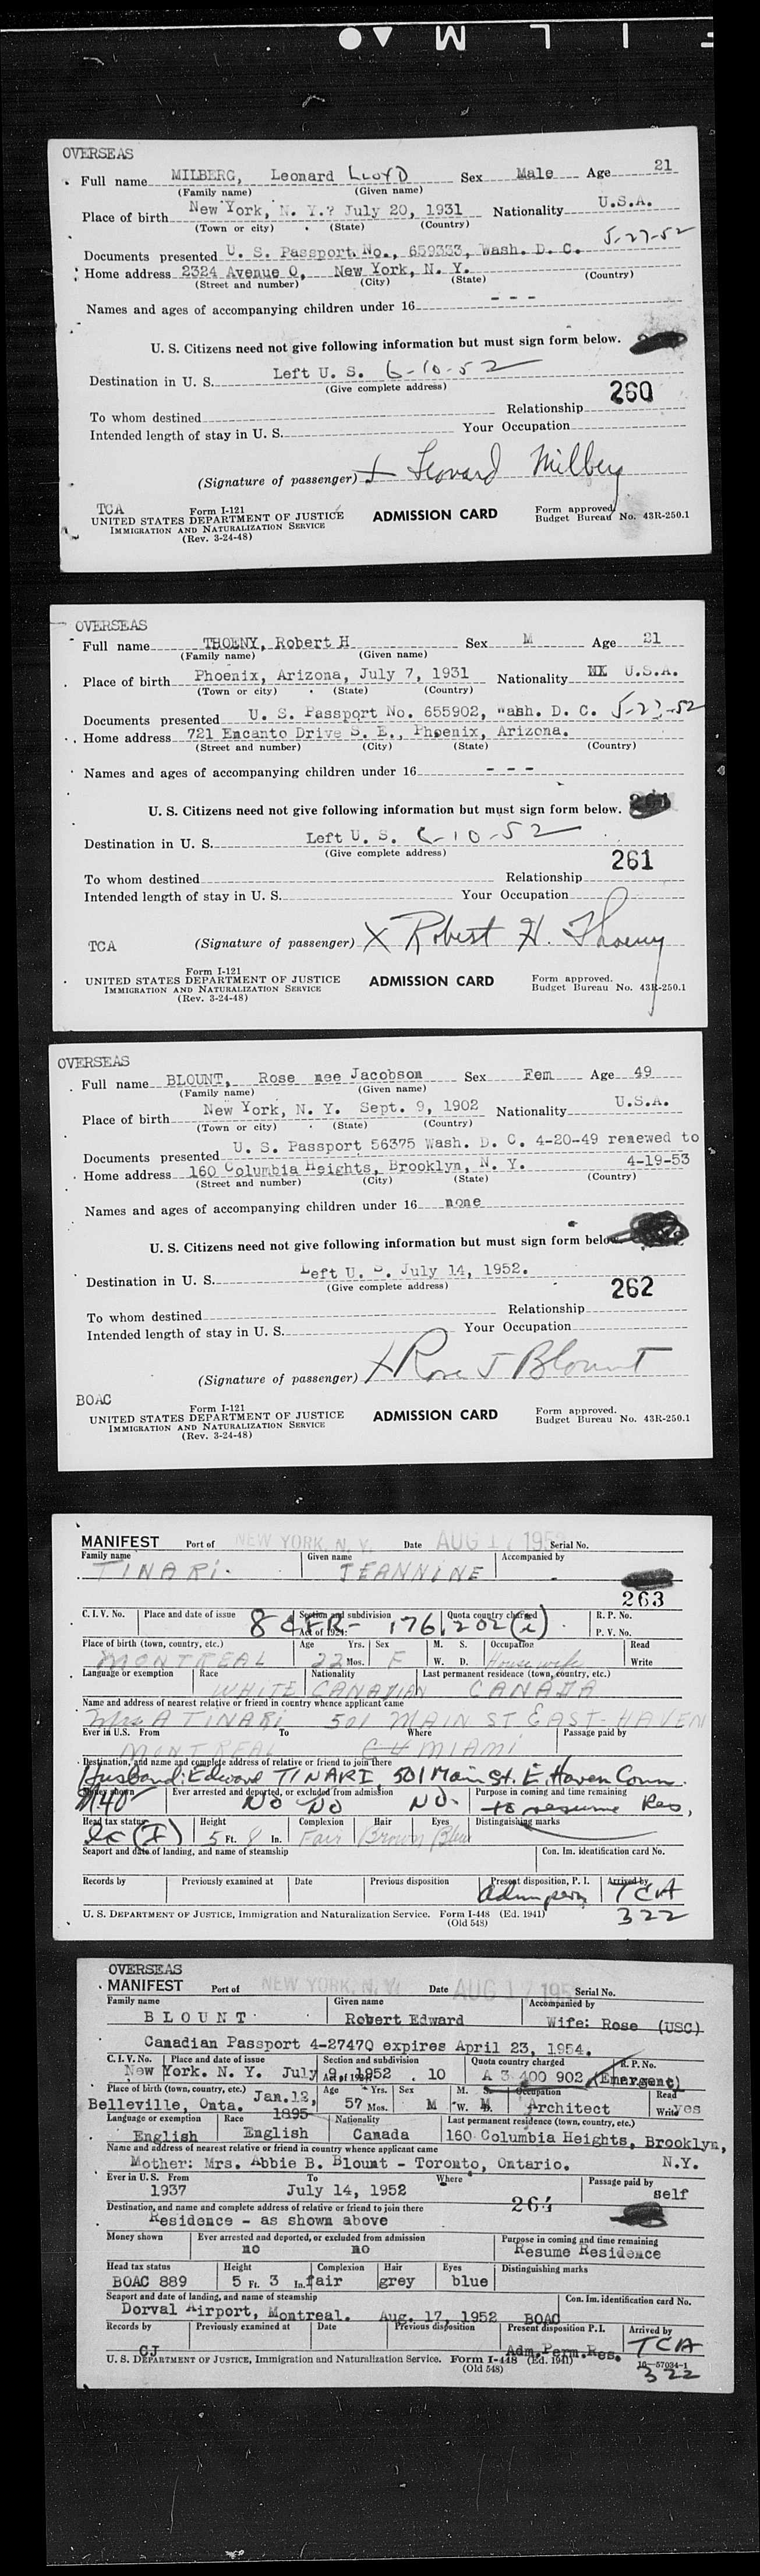 F I L M
OVERSEAS
Full name MILBERG, Leonard LLOYD Sex Male Age 21
(Family name) (Given name)
Place of birth New York, N. Y.? July 20, 1931 Nationality U.S.A.
(Town or city) (State) (Country)
5-27-52
Documents presented U. S. Passport No., 659333, Wash. D. C.
Home address 2324 Avenue O, New York, N. Y.
(Street and number) (City) (State) (Country)
Names and ages of accompanying children under 16 - - -
U. S. Citizens need not give following information but must sign form below.
Destination in U. S. Left U. S. 6-10-52
(Give complete address)
260
To whom destined Relationship
Intended length of stay in U. S. Your Occupation
(Signature of passenger) Leonard Milberg
TCA Form I-121
UNITED STATES DEPARTMENT OF JUSTICE ADMISSION CARD Form approved.
IMMIGRATION AND NATURALIZATION SERVICE Budget Bureau No. 43R-250.1
(Rev. 3-24-48)
OVERSEAS
Full name THOENY, Robert H Sex M Age 21
(Family name) (Given name)
Place of birth Phoenix, Arizona, July 7, 1931 Nationality U.S.A.
(Town or city) (State) (Country)
Documents presented U. S. Passport No. 655902, Wash. D. C. 5-27-52
Home address 721 Encanto Drive S. E., Phoenix, Arizona.
(Street and number) (City) (State) (Country)
Names and ages of accompanying children under 16 - - -
U. S. Citizens need not give following information but must sign form below.
Destination in U. S. Left U. S. 6-10-52
(Give complete address)
261
To whom destined Relationship
Intended length of stay in U. S. Your Occupation
TCA (Signature of passenger) X Robert H. Thoeny
Form I-121
UNITED STATES DEPARTMENT OF JUSTICE ADMISSION CARD Form approved.
IMMIGRATION AND NATURALIZATION SERVICE Budget Bureau No. 43R-250.1
(Rev. 3-24-48)
OVERSEAS
Full name BLOUNT, Rose nee Jacobson Sex Fem Age 49
(Family name) (Given name)
Place of birth New York, N. Y. Sept. 9, 1902 Nationality U.S.A.
(Town or city) (State) (Country)
Documents presented U. S. Passport 56375 Wash. D. C. 4-20-49 renewed to
Home address 160 Columbia Heights, Brooklyn, N. Y. 4-19-53
(Street and number) (City) (State) (Country)
Names and ages of accompanying children under 16 none
U. S. Citizens need not give following information but must sign form below.
Destination in U. S. Left U. S. July 14, 1952.
(Give complete address)
262
To whom destined Relationship
Intended length of stay in U. S. Your Occupation
(Signature of passenger) X Rose J Blount
BOAC
Form I-121
UNITED STATES DEPARTMENT OF JUSTICE ADMISSION CARD Form approved.
IMMIGRATION AND NATURALIZATION SERVICE Budget Bureau No. 43R-250.1
(Rev. 3-24-48)
MANIFEST Port of NEW YORK, N. Y. Date AUG 17 1952 Serial No.
Family name Given name Accompanied by
TINARI. JEANNINE
263
C. I. V. No. Place and date of issue Section and subdivision Act of 1924: Quota country charged R. P. No.
8 CFR- 176.202(i) P. V. No.
Place of birth (town, country, etc.) Age Yrs. Sex M. S. Occupation Read
MONTREAL 22 Mos. F W. D. Housewife Write
Language or exemption Race Nationality Last permanent residence (town, country, etc.)
WHITE CANADIAN CANADA
Name and address of nearest relative or friend in country whence applicant came
Mrs A TINARI 501 MAIN ST EAST-HAVEN
Ever in U.S. From To Where Passage paid by
MONTREAL MIAMI
Destination, and name and complete address of relative or friend to join there
Husband: Edward TINARI, 501 Main St. E. Haven Conn.
Money shown Ever arrested and deported, or excluded from admission Purpose in coming and time remaining
$140 No No No. to resume Res,
Head tax status Height Complexion Hair Eyes Distinguishing marks
5 Ft. 8 In. Fair Brown Blue
Seaport and date of landing, and name of steamship Con. Im. identification card No.
Records by Previously examined at Date Previous disposition Present disposition, P. I. Arrived by
adm perm TCA
U. S. DEPARTMENT OF JUSTICE, Immigration and Naturalization Service. Form I-448 (Ed. 1941) 322
(Old 548)
OVERSEAS
MANIFEST Port of NEW YORK, N. Y. Date AUG 17 1952 Serial No.
Family name Given name Accompanied by
BLOUNT Robert Edward Wife: Rose (USC)
Canadian Passport 4-27470 expires April 23, 1954.
C. I. V. No. Place and date of issue Section and subdivision Act of 1924: Quota country charged R. P. No.
New York. N. Y. July 9, 1952 10 A 3 400 902 (Emergent)
Place of birth (town, country, etc.) Age Yrs. Sex M. S. Occupation Read
Belleville, Onta. Jan.12, 1895 57 Mos. M W. M D. Architect Write yes
Language or exemption Race Nationality Last permanent residence (town, country, etc.)
English English Canada 160 Columbia Heights, Brooklyn,
Name and address of nearest relative or friend in country whence applicant came
Mother: Mrs. Abbie B. Blount - Toronto, Ontario. N.Y.
Ever in U.S. From To Where Passage paid by
1937 July 14, 1952 self
264
Destination, and name and complete address of relative or friend to join there
Residence - as shown above
Money shown Ever arrested and deported, or excluded from admission Purpose in coming and time remaining
no no Resume Residence
Head tax status Height Complexion Hair Eyes Distinguishing marks
BOAC 889 5 Ft. 3 In. fair grey blue
Seaport and date of landing, and name of steamship Con. Im. identification card No.
Dorval Airport, Montreal. Aug. 17, 1952 BOAC
Records by Previously examined at Date Previous disposition Present disposition P. I. Arrived by
CJ Adm.Perm.Res. TCA
U. S. DEPARTMENT OF JUSTICE, Immigration and Naturalization Service. Form I-448 (Ed. 1941) 16-57034-1
(Old 548) 322